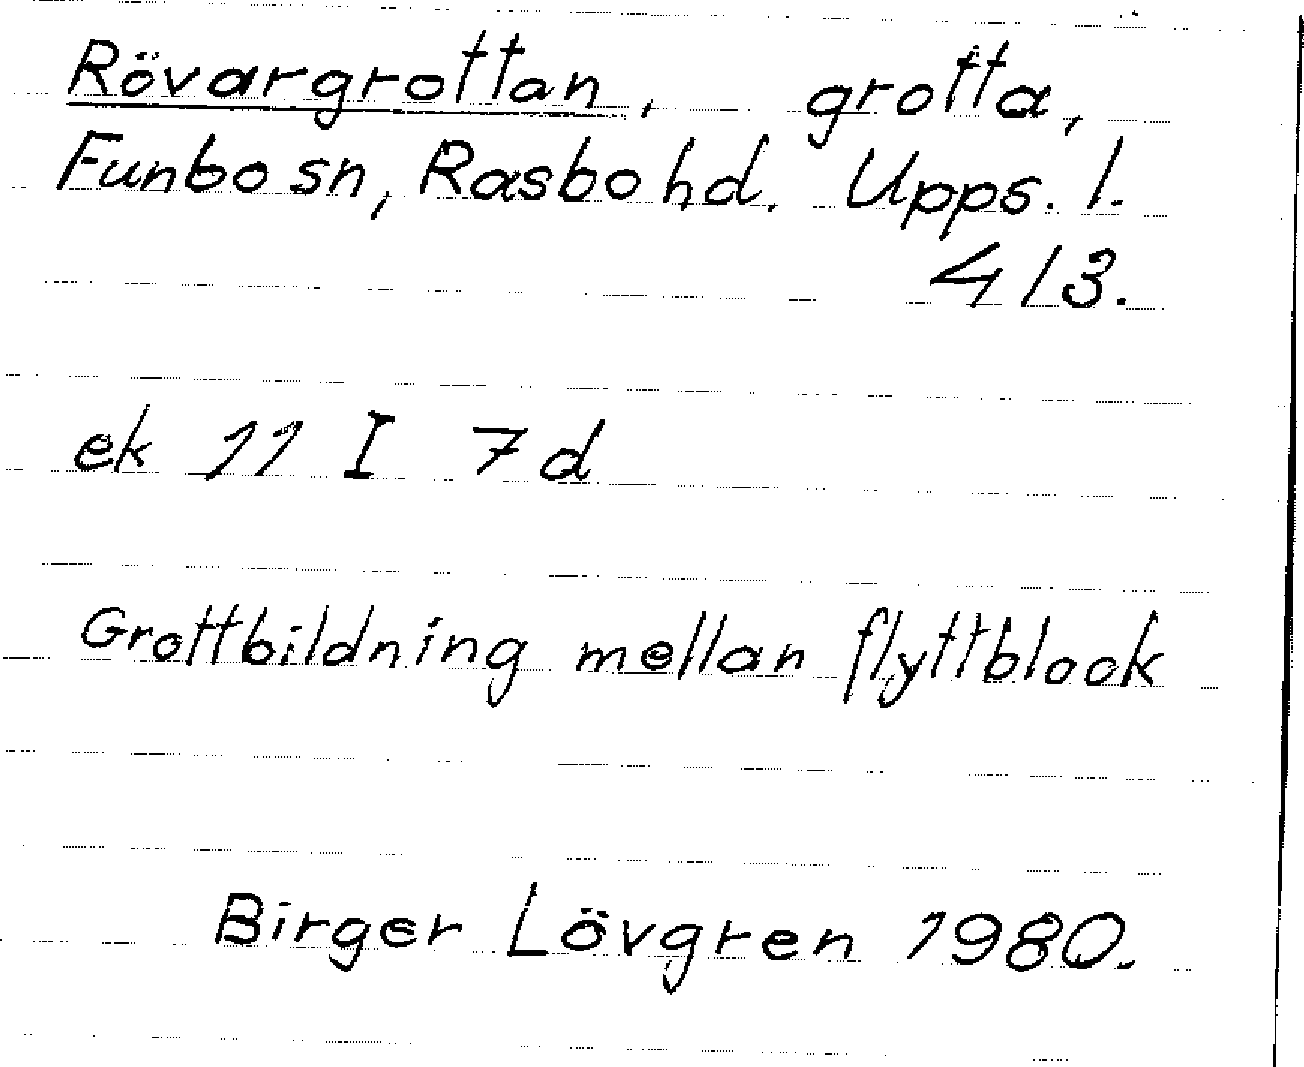 Rövargrottan, grotta,
Funbo sn, Rasbo hd. Upps. l.
4/3.
ek 11 I 7d
Grottbildning mellan flyttblock
Birger Lövgren 1980.